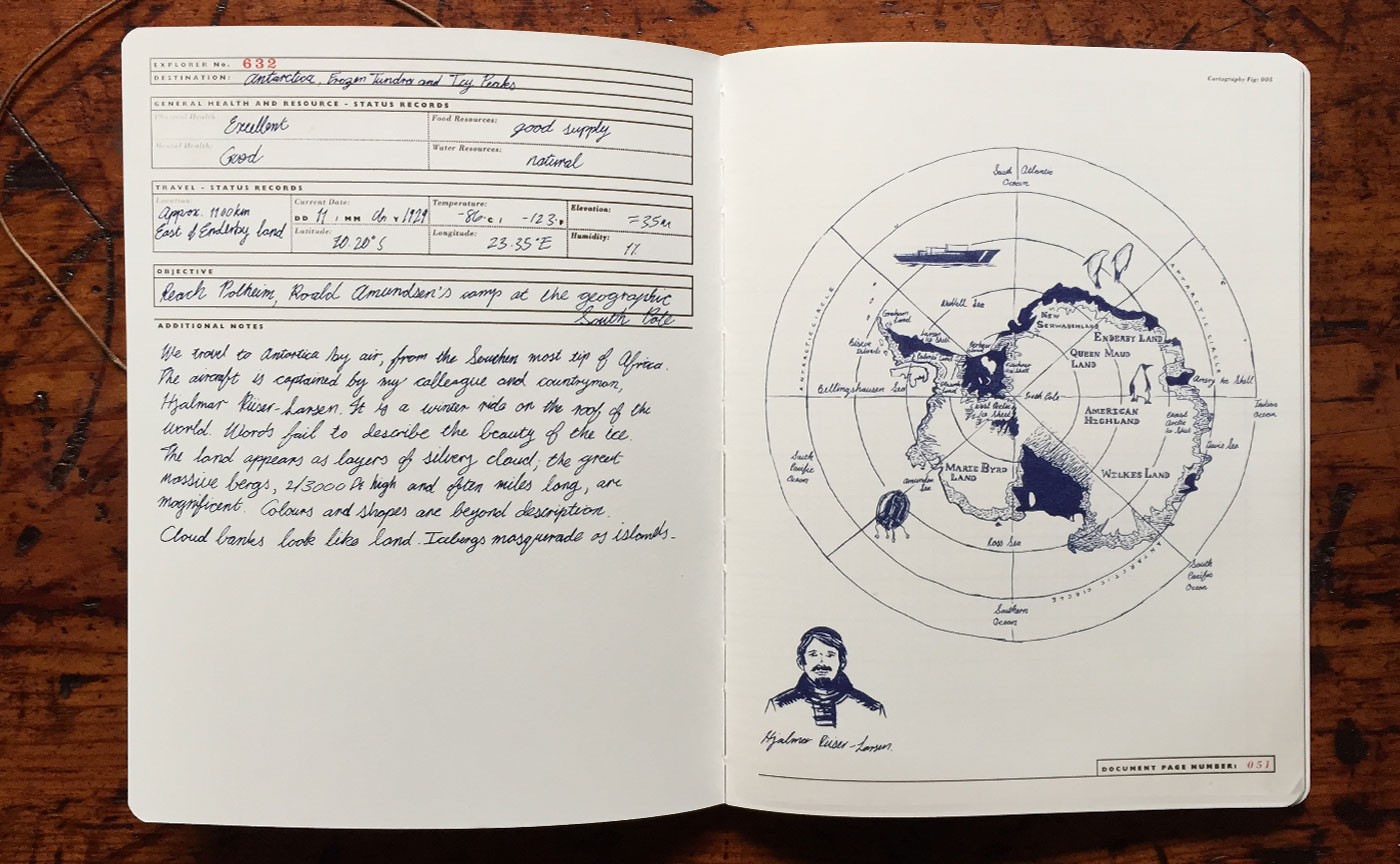 EXPLORER No. 632
DESTINATION: Antarctica, Frozen Tundra and Icy Peaks
GENERAL HEALTH AND RESOURCE - STATUS RECORDS
Physical Health: Excellent
Food Resources: good supply
Mental Health: Good
Water Resources: natural
TRAVEL - STATUS RECORDS
Location: Approx. 1100km
East of Enderby land
Current Date:
DD 11 / MM / Y 1929
Temperature:
-86°C / -123°F
Elevation:
Latitude: 70.20°S
Longitude: 23.35°E
Humidity: 1%
OBJECTIVE
Reach Polheim, Roald Amundsen's camp at the geographic
South Pole
ADDITIONAL NOTES
We travel to Antartica by air, from the Southen most tip of Africa.
The aircraft is captained by my colleague and countryman,
Hjalmar Riiser-Larsen. It is a winter ride on the roof of the
world. Words fail to describe the beauty of the ice.
The land appears as layers of silvery cloud; the great
massive bergs, 2/3000 ft high and often miles long, are
magnificent. Colours and shapes are beyond description.
Cloud banks look like land. Icebergs masquerade as islands-
Cartography Fig: 002
South Atlantic
Ocean
ANTARCTIC CIRCLE
ANTARCTIC CIRCLE
Weddell Sea
Graham
Land
New
Schwabenland
Enderby Land
Queen Maud
Land
Bellingshausen Sea
South Pole
Amery Ice Shelf
Indian
Ocean
American
Highland
East
Arctic
Ice Shelf
West Arctic
Ice Shelf
Davis Sea
South
Pacific
Ocean
Marie Byrd
Land
Wilkes Land
Amundsen
Sea
Ross Sea
ANTARCTIC CIRCLE
South
Pacific
Ocean
Southern
Ocean
Hjalmar Riiser-Larsen.
DOCUMENT PAGE NUMBER: 051